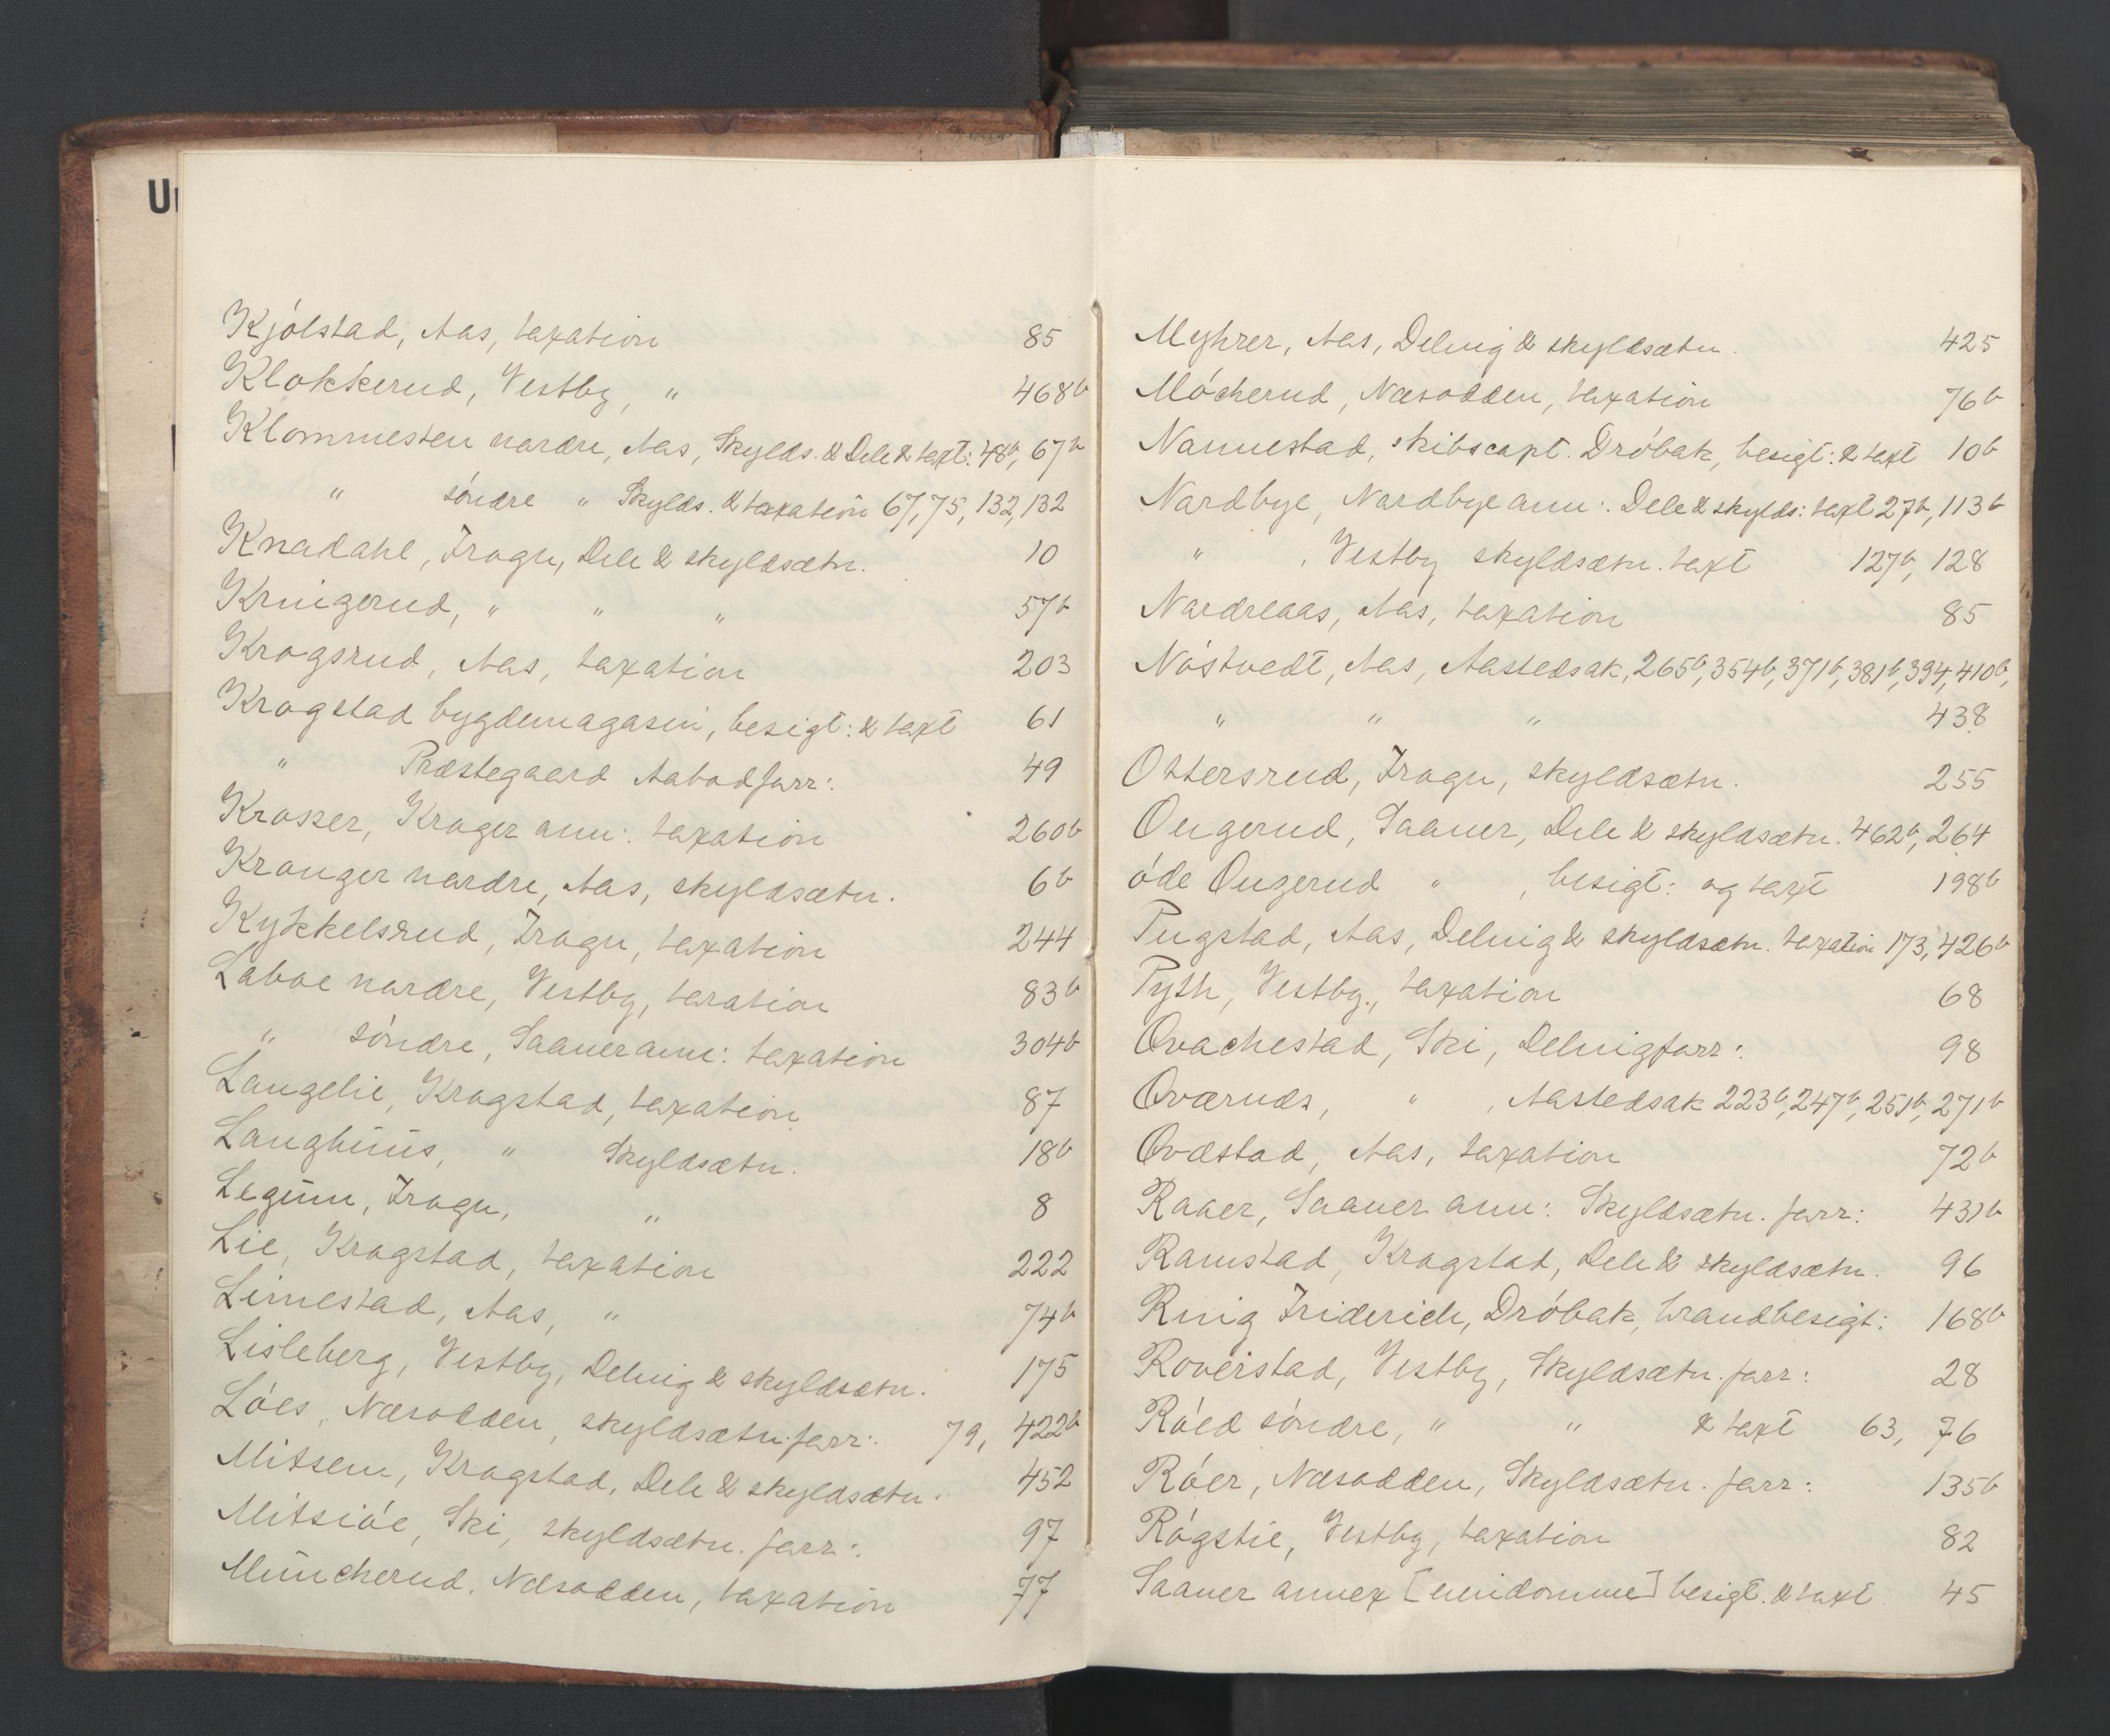 Kjólstad, Aas, taxation 85
Klokkerud, Vestby, " 468b
Klommesten nordre, Aas, Skylds. & Dele & taxt: 48b, 67b
" söndre " Skylds. & taxation 67, 75, 132, 132
Knadahl, Frogn, Dele & skyldsætn. 10
Kringerud, " " " 57b
Krogsrud, Aas, taxation 203
Krogstad bygdemagasin, besigt: & taxt 61
" Præstegaard Aabodforr: 49
Krosser, Kroger ann: taxation 260b
Kronger nordre, Aas, skyldsætn. 6b
Kykkelsrud, Frogn, taxation 244
Laboe nordre, Vestby, taxation 83b
" söndre, Saaner ann: taxation 304b
Langelie, Krogstad, taxation 87
Langhüüs, " Skyldsætn. 18b
Legüm, Frogn, " 8
Lie, Krogstad, taxation 222
Limestad, Aas, " 74b
Lisleberg, Vestby, Delnig & skyldsætn. 175
Lóes, Næsodden, skyldsætn.forr: 79, 422b
Mitsem, Krogstad, Dele & skyldsætn. 452
Mitsióe, Ski, skyldsætn. forr: 97
Müncherud, Næsodden, taxation 77
Myhrer, Aas, Delnig & skyldsætn. 425
Mócherud, Næsodden, taxation 76b
Nannestad, skibscapt. Dróbak, besigt: & taxt 10b
Nordbye, Nordbye ann: Dele & skylds: taxt 27b, 113b
" , Vestby skyldsætn. taxt 127b, 128
Nordreaas, Aas, taxation 85
Nóstvedt, Aas, Aastedsak, 265b, 354b, 371b, 381b, 394, 410b,
" " " 438
Ottersrud, Frogn, skyldsætn. 255
Ougerud, Saaner, Dele & skyldsætn. 462b, 264
óde Ougerud " , besigt: og taxt 198b
Pugstad, Aas, Delnig & skyldsætn. taxation 173, 426b
Pyth, Vestby, taxation 68
Qvachestad, Ski, Delnigforr: 98
Qværnds, " , Aastedsak 223b, 247b, 251b, 271b
Qvæstad, Aas, taxation 72b
Raaer, Saaner ann: Skyldsætn. forr: 431b
Ramstad, Krogstad, Dele & skyldsætn. 96
Ring Friderich, Dróbak, brandbesigt: 168b
Roverstad, Vestby, Skyldsætn. forr: 28
Róed söndre, " " & taxt 63, 76
Róer, Næsodden, Skyldsætn. forr: 135b
Rógstie, Vestby, taxation 82
Saaner annex [eiendomme] besigt. & taxt 45